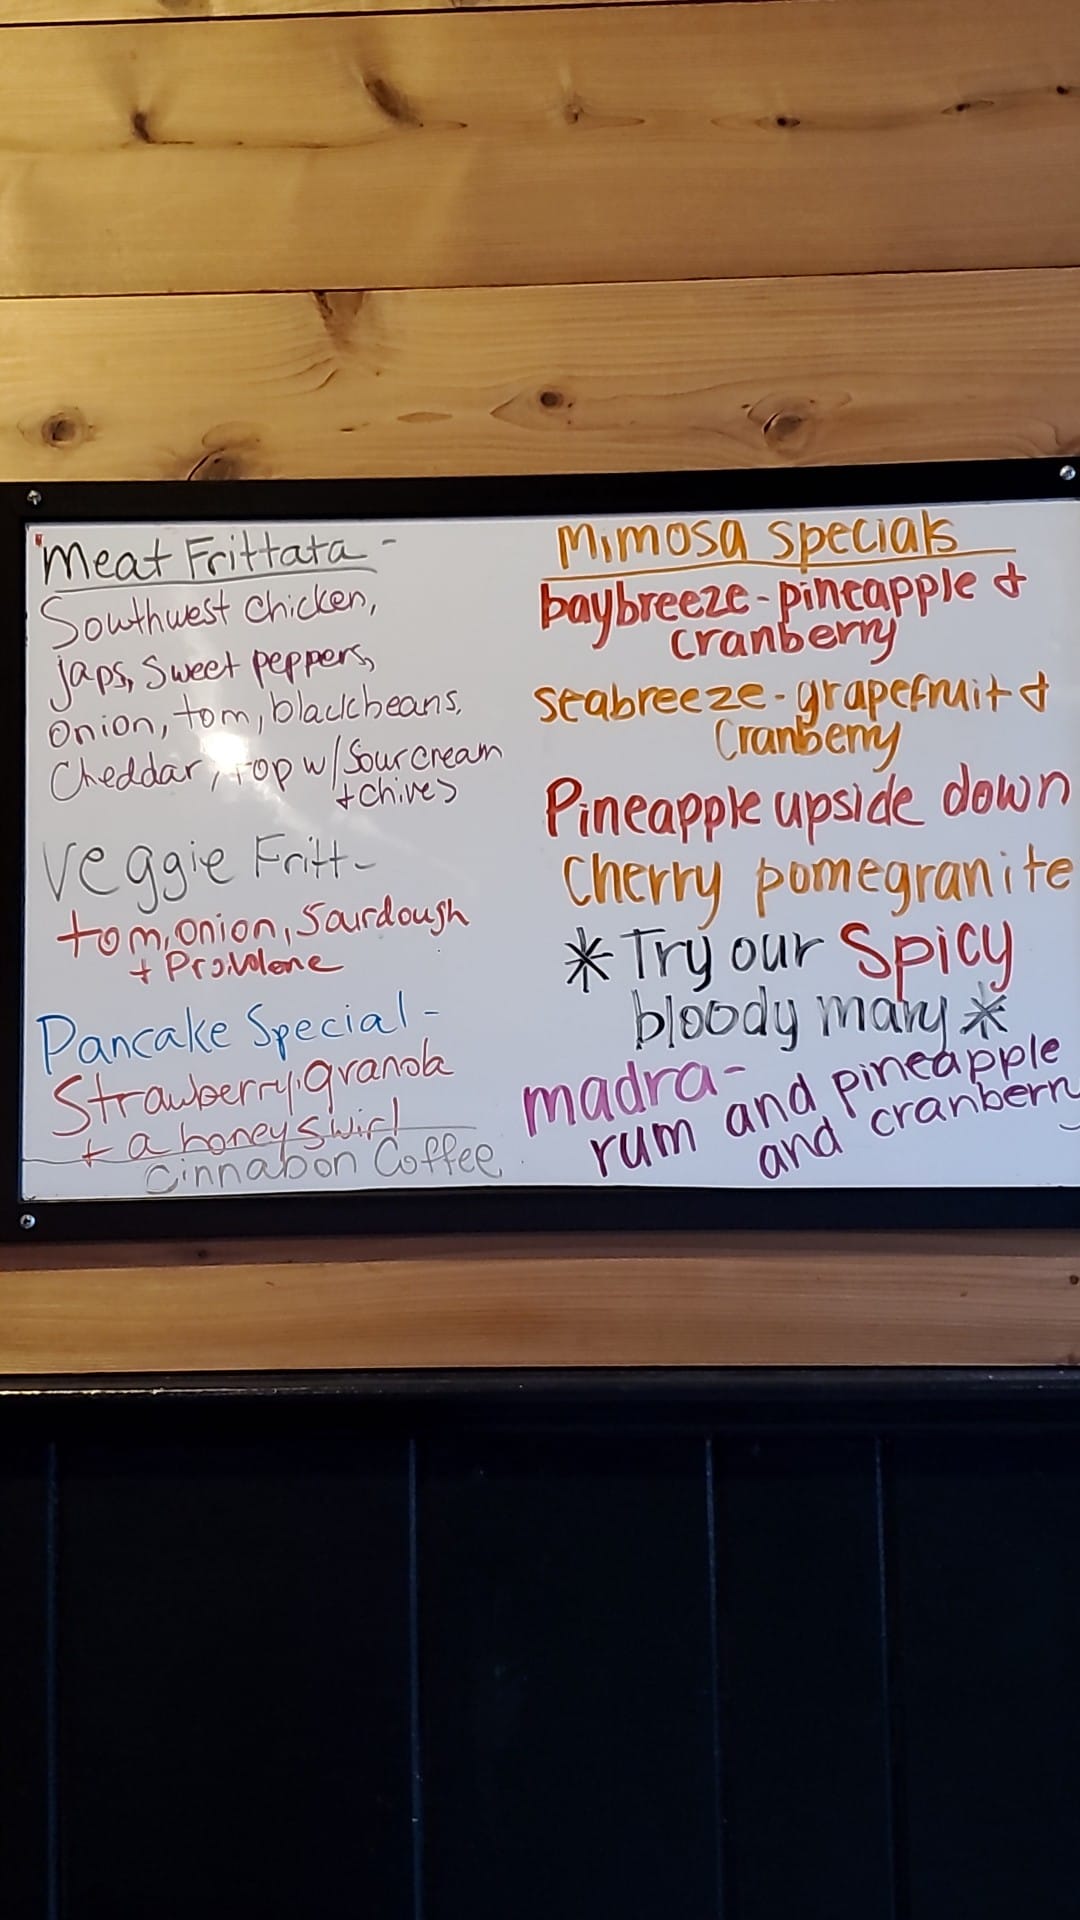 Meat Frittata -
Southwest chicken,
japs, sweet peppers,
onion, tom, blackbeans,
Cheddar, Top w/ Sour cream
+ chives
Veggie Fritt-
tom, onion, Sourdough
+ Provolone
Pancake Special -
Strawberry, granola
+ a honey swirl
Cinnabon Coffee
Mimosa specials
baybreeze - pineapple &
cranberry
seabreeze - grapefruit &
Cranberry
Pineapple upside down
Cherry pomegranite
* Try our Spicy
bloody mary *
madra-
rum and pineapple
and cranberry